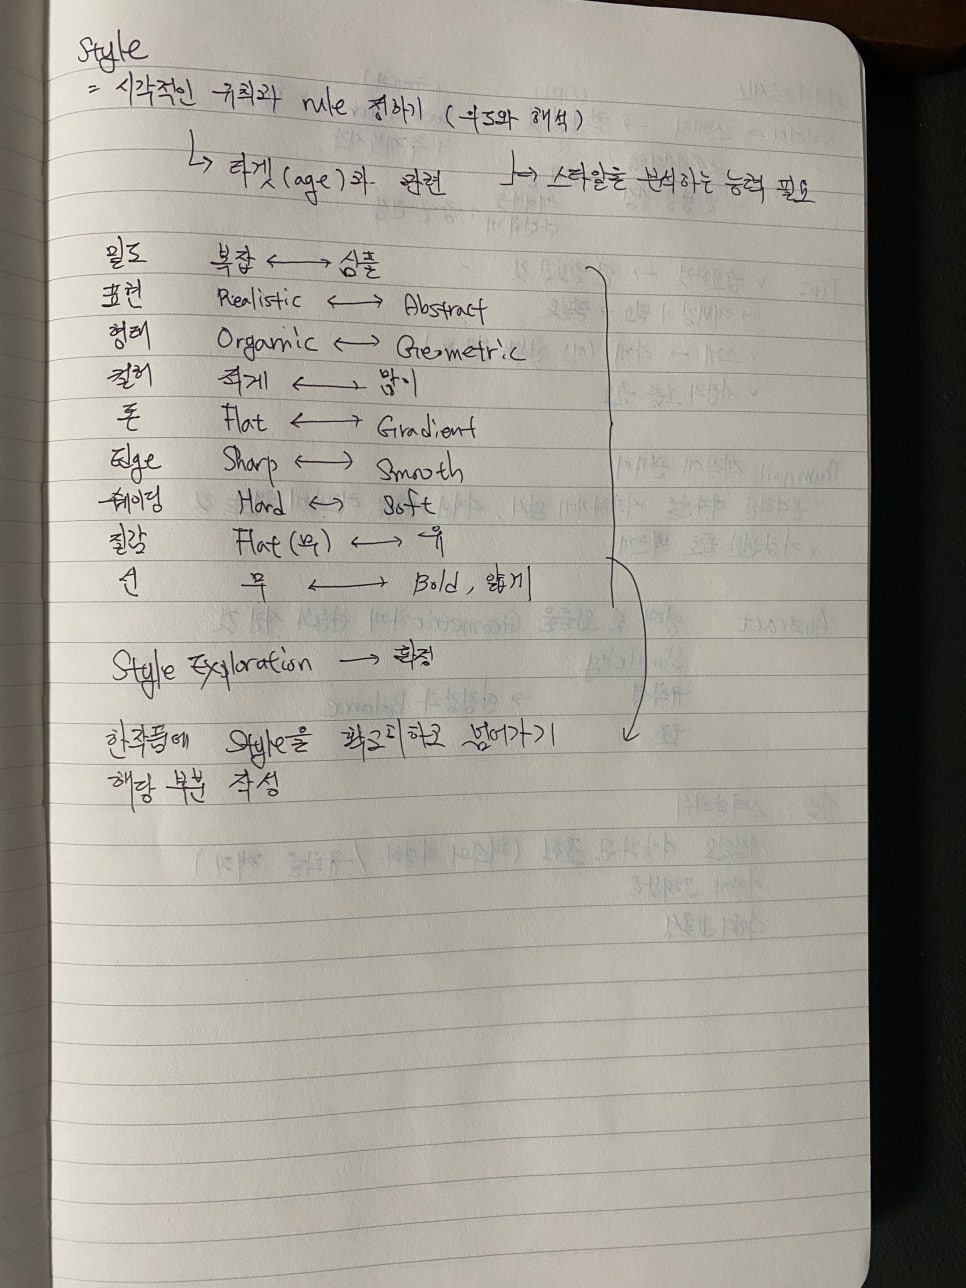 Style
= 시각적인 규칙과 rule 정하기 (의도와 해석)
↳ 타겟(age)과 관련 ↳ 스타일을 분석하는 능력 필요
밀도 복잡 ←→ 심플
표현 Realistic ←→ Abstract
형태 Organic ←→ Geometric
컬러 적게 ←→ 많이
톤 Flat ←→ Gradient
Edge Sharp ←→ Smooth
쉐이딩 Hard ←→ Soft
질감 Flat (무) ←→ 유
선 무 ←→ Bold, 얇게
Style Exploration → 확정
한작품에 Style을 확고히하고 넘어가기
해당 부분 작성